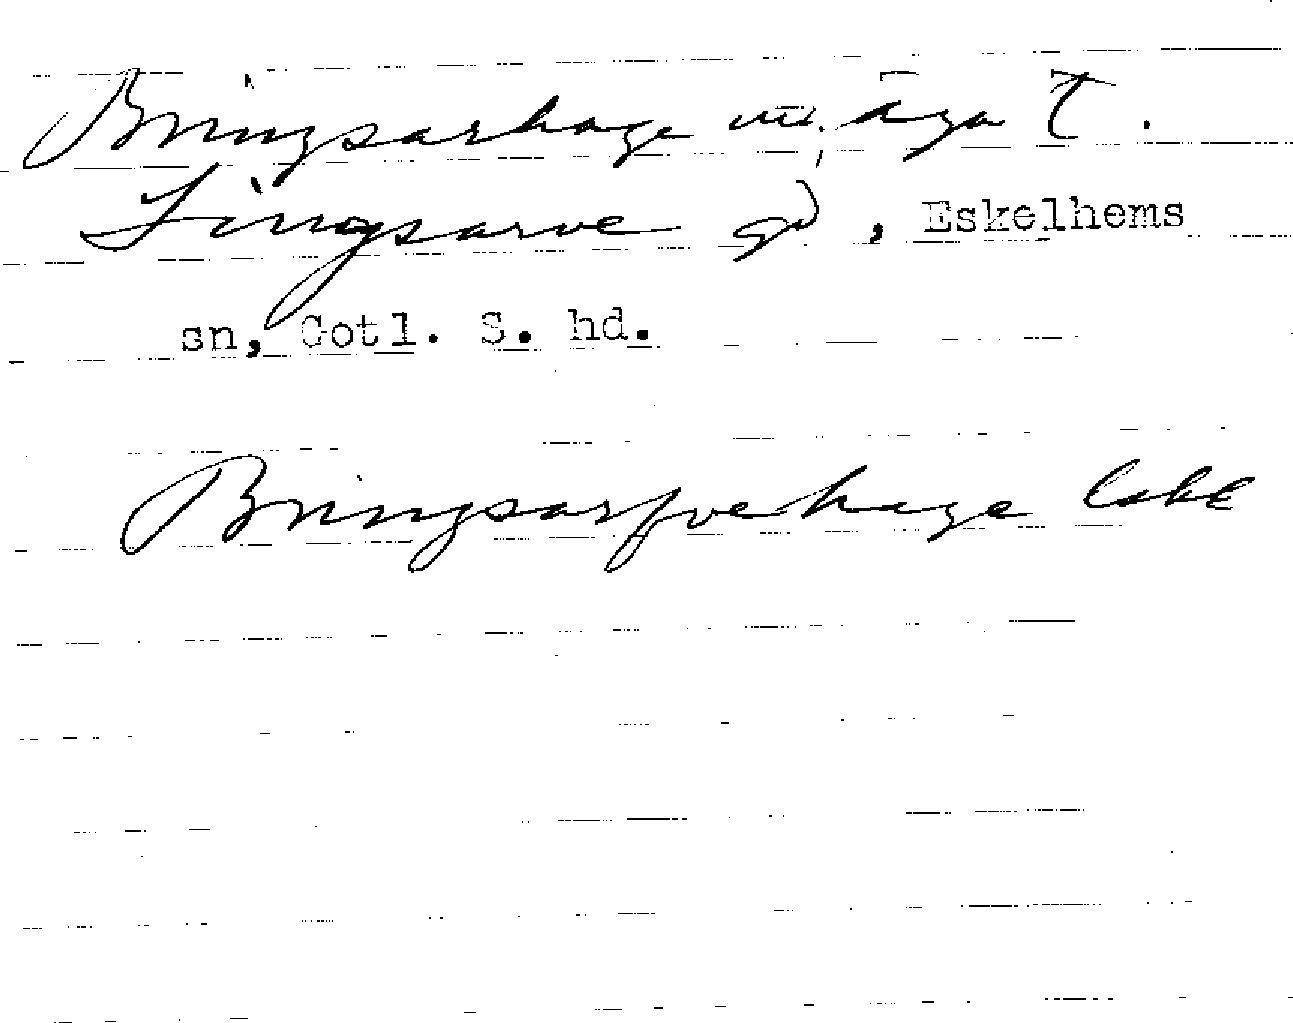 Bringsarhage m, äga t.
Lingsarve gd, Eskelhems
sn, Gotl. S. hd.
Bringsarfvehage